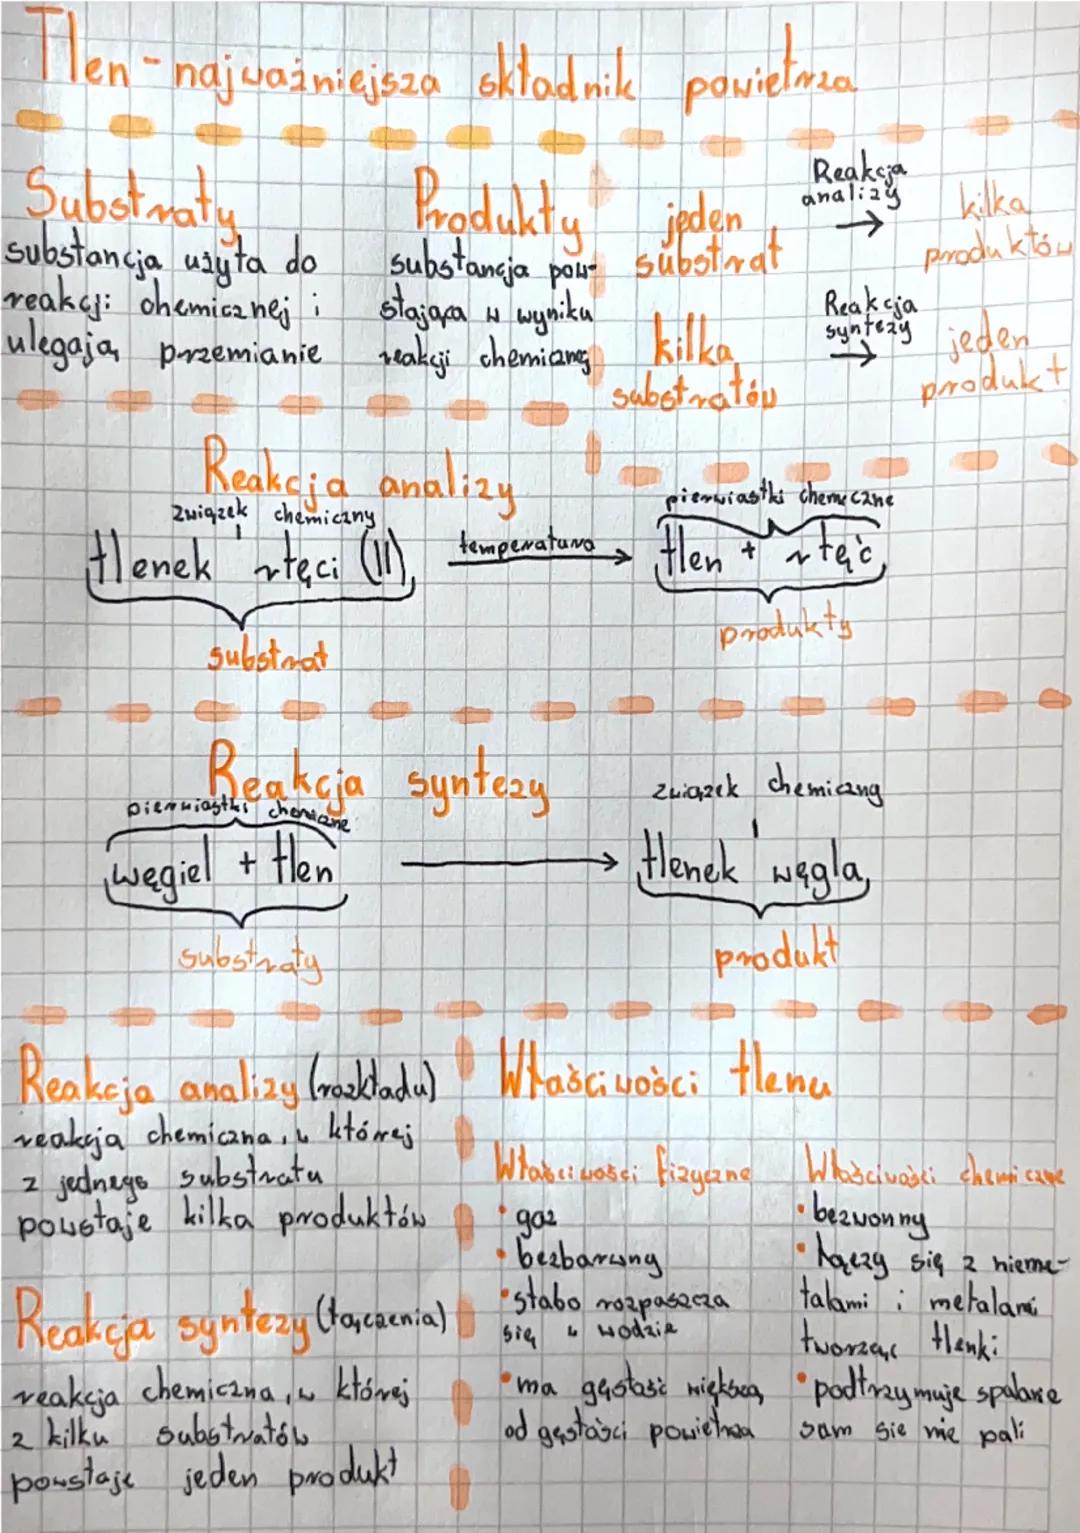 Tlen - najważniejsza składnik powietrza
Substraty
substancja użyta do
reakcji chemicznej i
ulegają przemianie
Produkty
substancja pow-
stająca w wyniku
reakcji chemicznej
jeden
substrat
Reakcja
analizy
→
kilka
produktów
kilka
substratów
Reakcja
syntezy
→
jeden
produkt
Reakcja analizy
związek chemiczny
tlenek rtęci (II)
substrat
temperatura
pierwiastki chemiczne
tlen + rtęć
produkty
Reakcja syntezy
pierwiastki chemiczne
węgiel + tlen
substraty
związek chemiczny
tlenek węgla
produkt
Reakcja analizy (rozkładu)
reakcja chemiczna, w której
z jednego substratu
powstaje kilka produktów
Reakcja syntezy (łączenia)
reakcja chemiczna, w której
z kilku substratów
powstaje jeden produkt
Właściwości tlenu
Właściwości fizyczne
• gaz
• bezbarwny
• słabo rozpaszcza
się w wodzie
• ma gęstość większą
od gęstości powietrza
Właściwości chemiczne
• bezwonny
• łączy się z nieme-
talami i metalami
tworząc tlenki
• podtrzymuje spalanie
sam sie nie pali